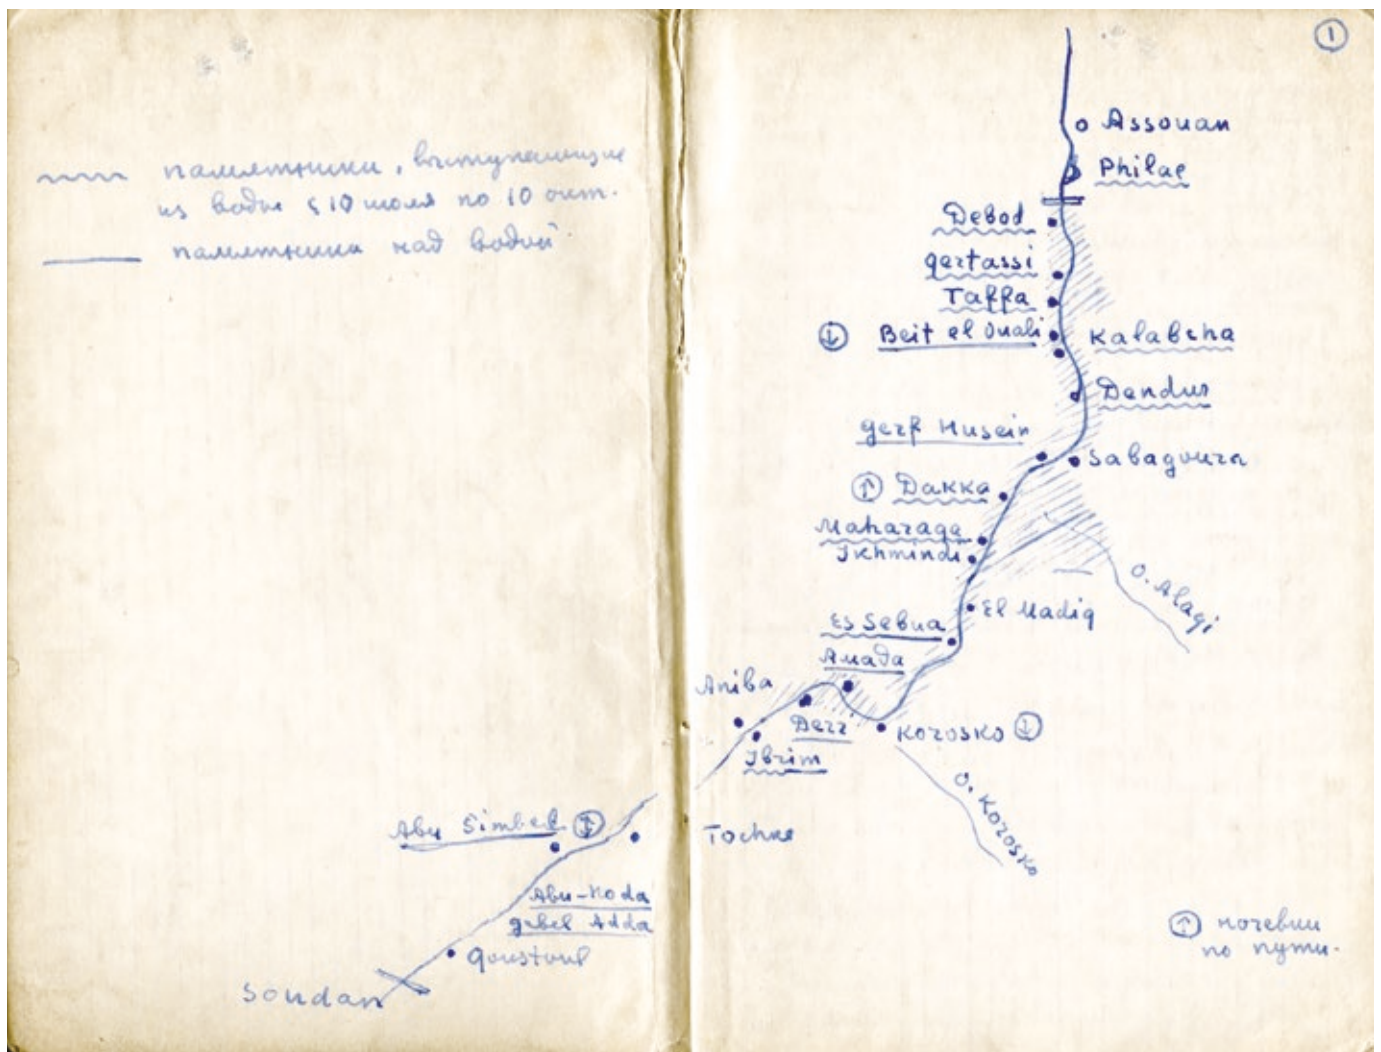 памятники, выступающие
из воды с 10 июля по 10 окт.
памятники над водой
1
Assouan
Philae
Debod
Gertassi
Taffa
Beit el Ouali
Kalabcha
Dendur
Gerf Husein
Sabagoura
Dakka
Maharaga
Ikhmindi
O. Alaqi
El Madiq
Es Sebua
Amada
Aniba
Derr
Korosko
Ibrim
O. Korosko
Abu Simbel
Tochke
Abu-Hoda
Gebel Adda
Qoustoul
Soudan
ночевки
по пути.